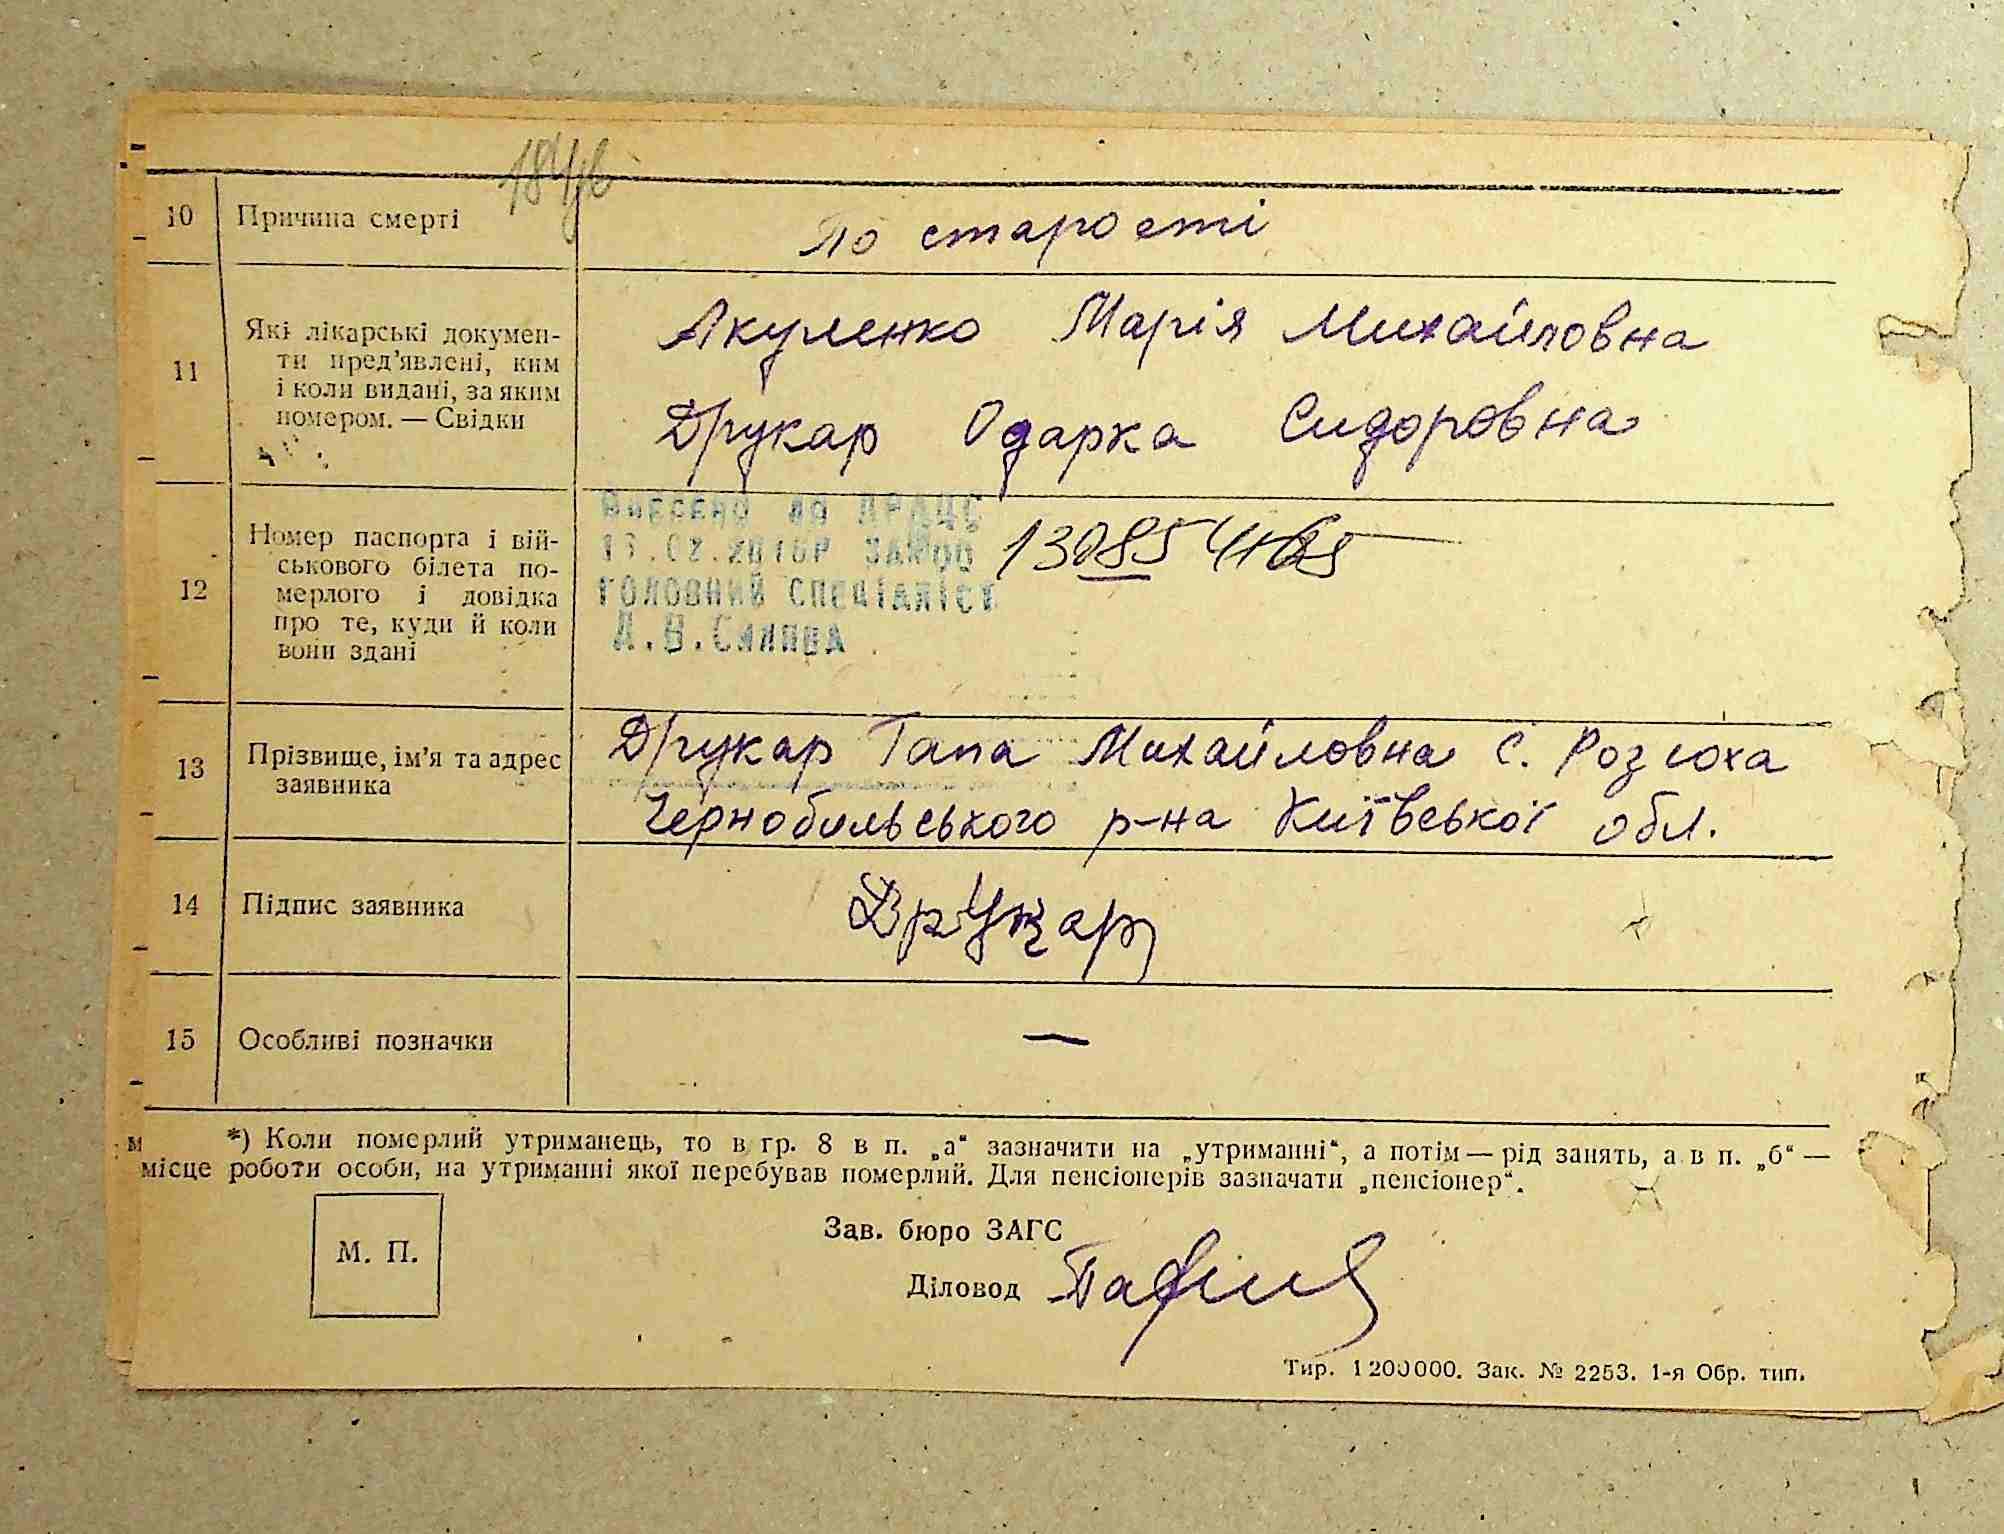 10 Причина смерті По старості
11 Які лікарські докумен-
ти пред'явлені, ким
і коли видані, за яким
номером. — Свідки
Акуленко Марія Михайловна
Друкар Одарка Сидоровна
12 Номер паспорта і вій-
ськового білета по-
мерлого і довідка
про те, куди й коли
вони здані
Внесено до ДРАЦС
головний спеціаліст
13085
13 Прізвище, ім'я та адрес
заявника
Друкар Гапа Михайловна с. Розсоха
Чернобильського р-на Київської обл.
14 Підпис заявника Друкар
15 Особливі позначки —
м *) Коли померлий утриманець, то в гр. 8 в п. „а“ зазначити на „утриманні“, а потім — рід занять, а в п. „б“ —
місце роботи особи, на утриманні якої перебував померлий. Для пенсіонерів зазначати „пенсіонер“.
М. П.
Зав. бюро ЗАГС
Діловод
Тир. 1200000. Зак. № 2253. 1-я Обр. тип.